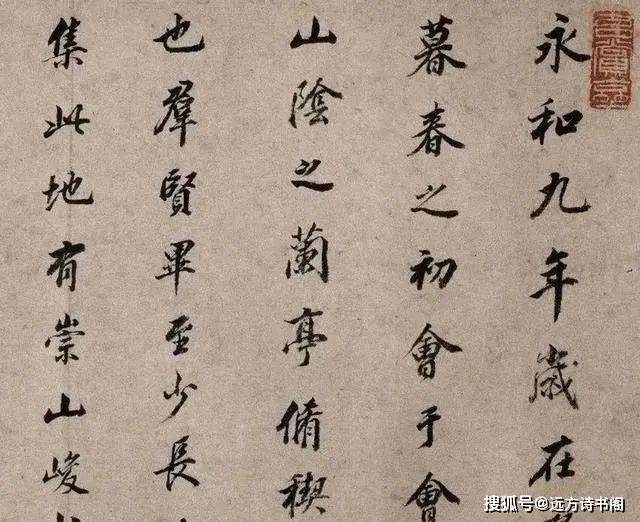 永和九年歲在
暮春之初會于會
山陰之蘭亭脩禊
也羣賢畢至少長
集此地有崇山峻
搜狐号@远方诗书阁